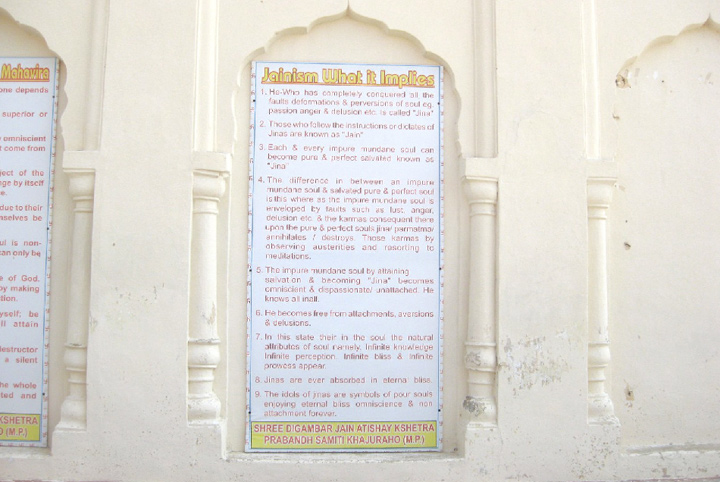 Mahawira
one depends
superior or
omniscient
t come from
ject of the
nge by itself
e.
due to their
mselves be
ul is non-
can only be
e of God.
by making
tion.
yself; be
ll attain
destructor
a silent
he whole
ted and
KSHETRA
O (M.P.)
Jainism What it Implies
1. He-Who has completely conquered all the
faults deformations & perversions of soul eg.
passion anger & delusion etc. is called "Jina"
2. Those who follow the instructions or dictates of
Jinas are known as "Jain"
3. Each & every impure mundane soul can
become pure & perfect salvated known as
"Jina"
4. The difference in between an impure
mundane soul & salvated pure & perfect soul
is this where as the impure mundane soul is
enveloped by faults such as lust, anger,
delusion etc. & the karmas consequent there
upon the pure & perfect souls jina/ parmatma/
annihilates / destroys. Those karmas by
observing austerities and resorting to
meditations.
5. The impure mundane soul by attaining
salvation & becoming "Jina" becomes
omniscient & dispassionate/ unattached. He
knows all inall.
6. He becomes free from attachments, aversions
& delusions.
7. In this state their in the soul the natural
attributes of soul namely. Infinite knowledge
Infinite perception. Infinite bliss & Infinite
prowess appear.
8. Jinas are ever absorbed in eternal bliss.
9. The idols of jinas are symbols of pour souls
enjoying eternal bliss omniscience & non
attachment forever.
SHREE DIGAMBAR JAIN ATISHAY KSHETRA
PRABANDH SAMITI KHAJURAHO (M.P.)